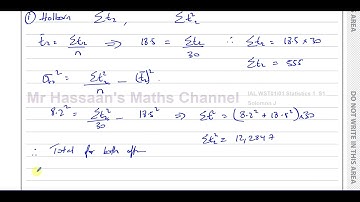 (i) Holborn Σt₂ Σt₂²
t̄₂ = Σt₂/n ⇒ 18.5 = Σt₂/30 ∴ Σt₂ = 18.5 × 30
Σt₂ = 555
σ₂² = Σt₂²/n - (t̄₂)²
8.2² = Σt₂²/30 - 18.5² ⇒ Σt² = (8.2² + 18.5²) × 30
Σt₂² = 12,284.7
∴ Total for both
Mr Hassaan's Maths Channel
IAL WST01/01 Statistics 1 S1
DO NOT WRITE IN THIS AREA